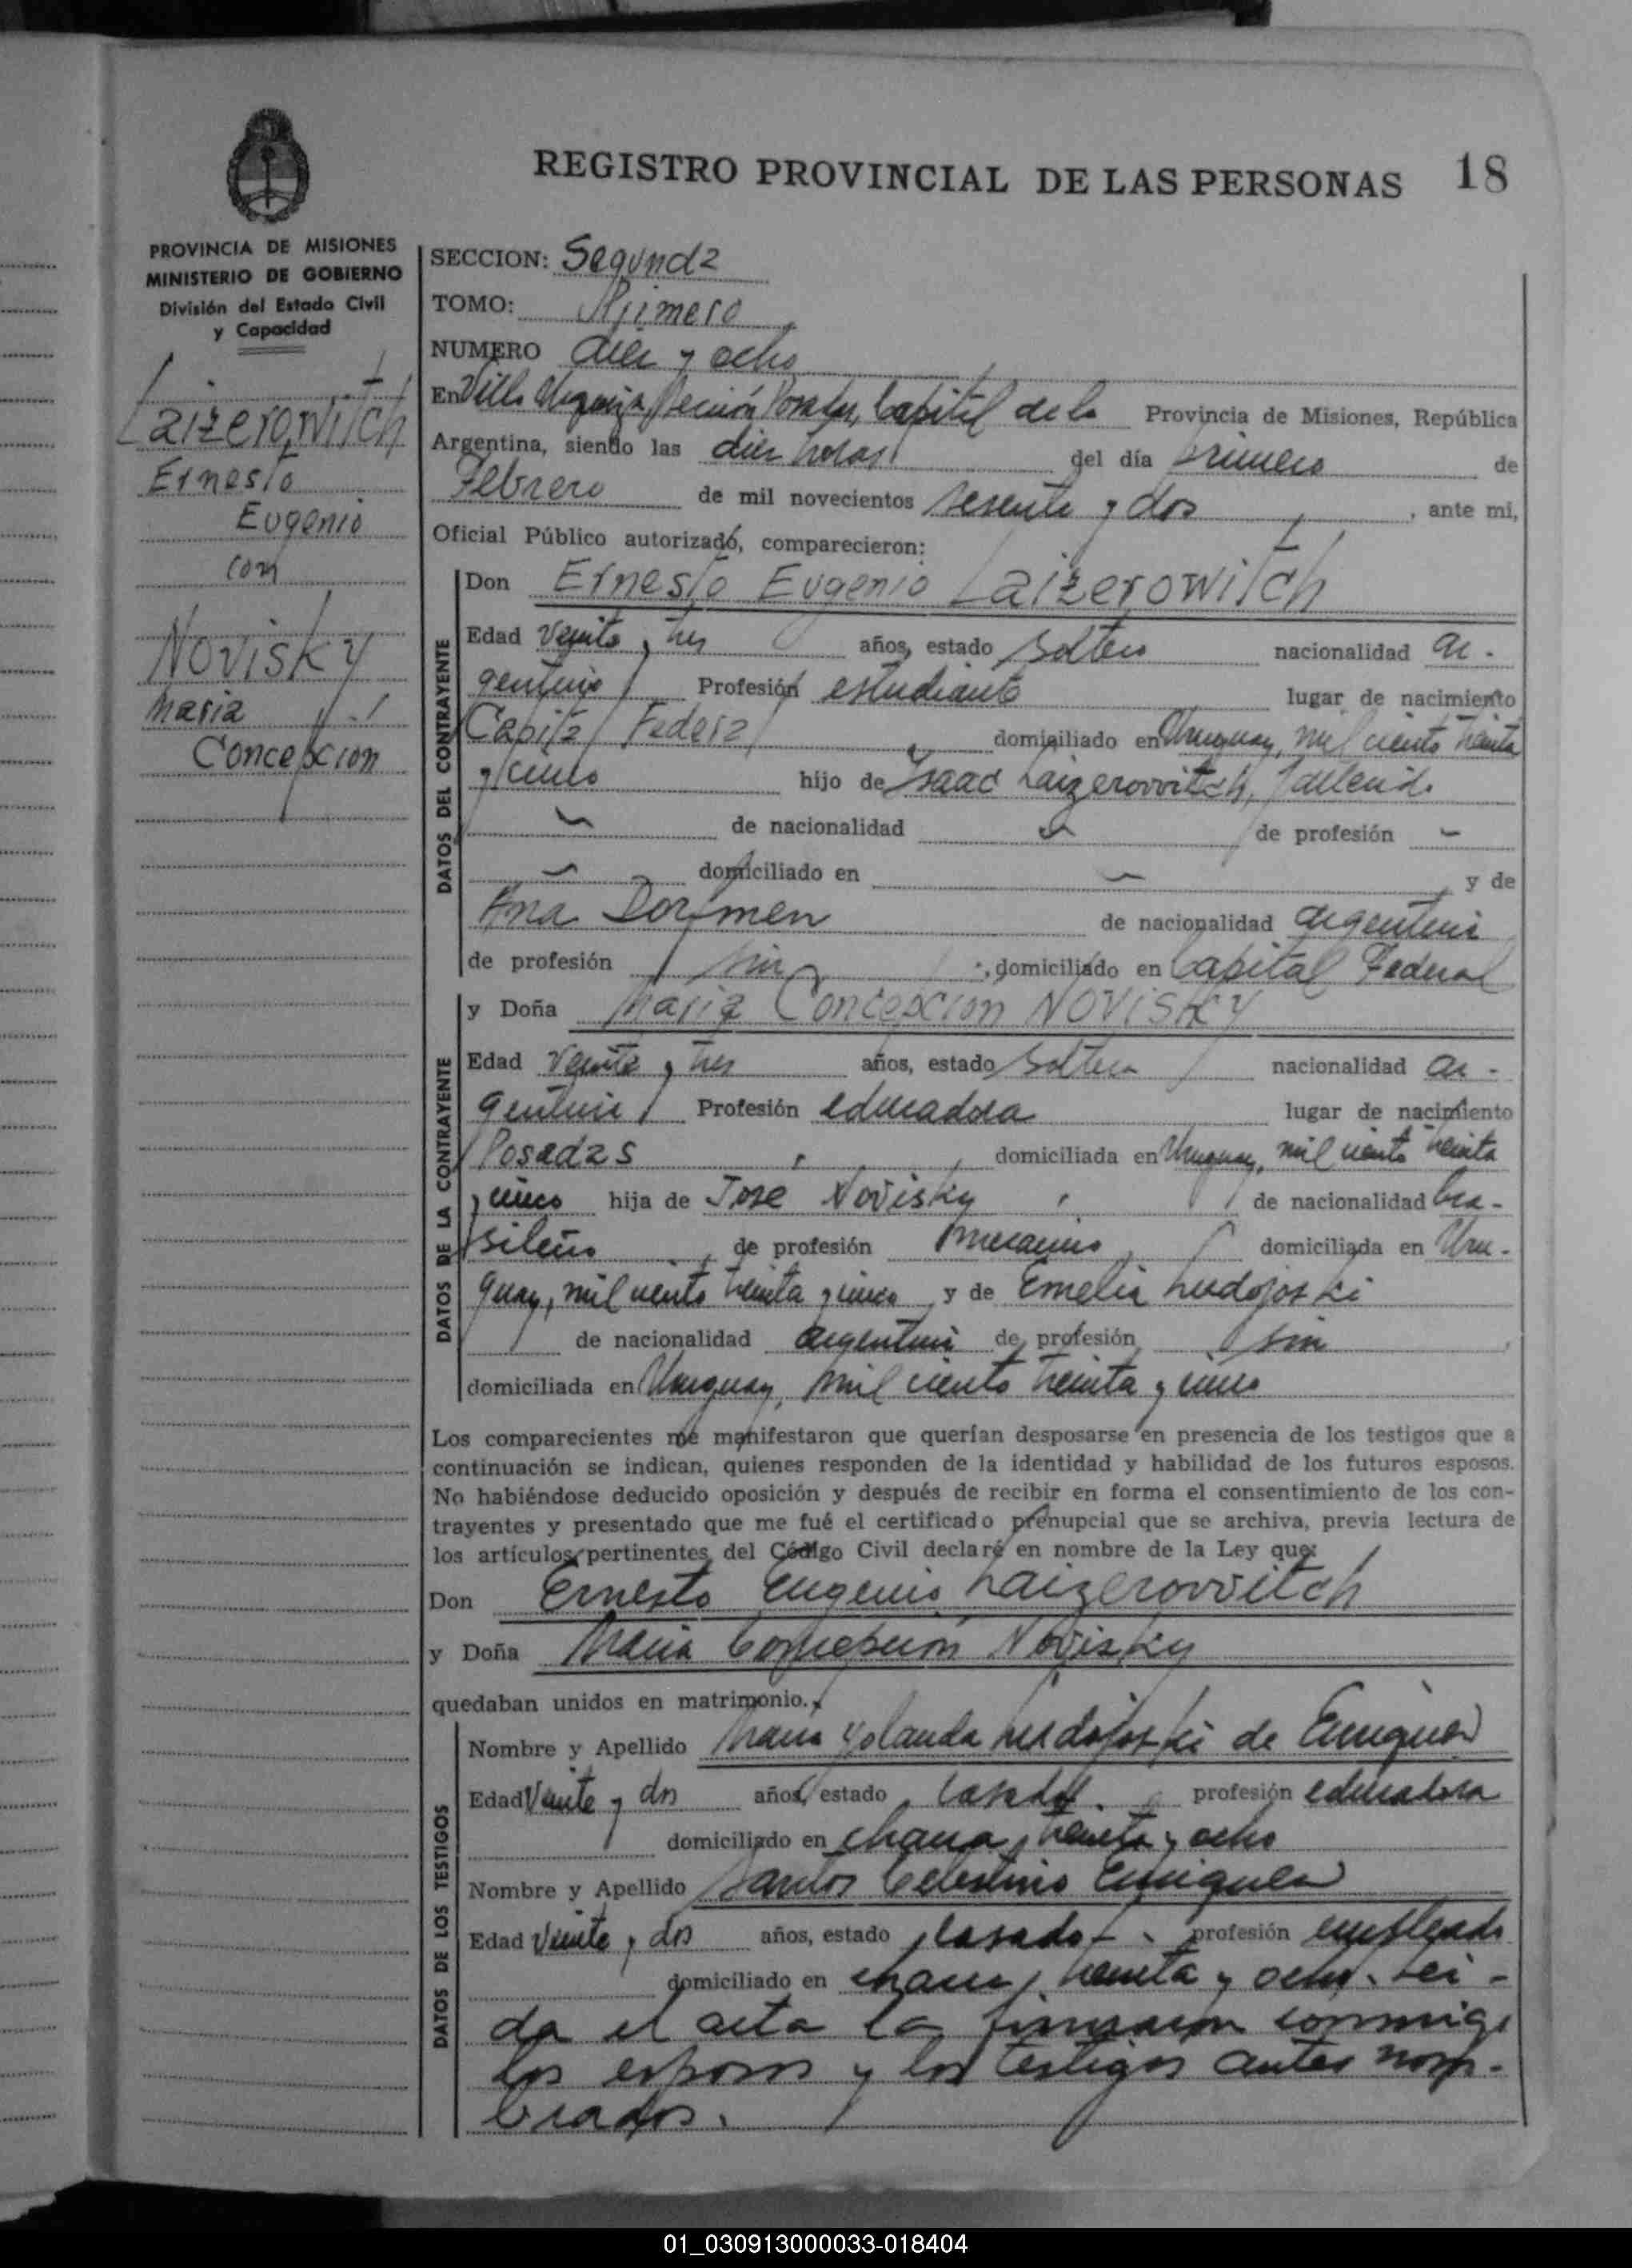 REGISTRO PROVINCIAL DE LAS PERSONAS 18
PROVINCIA DE MISIONES
MINISTERIO DE GOBIERNO
División del Estado Civil
y Capacidad
Laizerowitch
Ernesto
Eugenio
con
Novisky
Maria
Concepcion
SECCION: Segunda
TOMO: Primero
NUMERO diez y ocho
En Villa Urquiza, Sección Posadas, Capital de la Provincia de Misiones, República
Argentina, siendo las diez horas del día primero de
Febrero de mil novecientos sesenta y dos, ante mí,
Oficial Público autorizado, comparecieron:
DATOS DEL CONTRAYENTE
Don Ernesto Eugenio Laizerowitch
Edad veinte y tres años, estado soltero nacionalidad ar-
gentino Profesión estudiante lugar de nacimiento
Capital Federal domiciliado en Uruguay, mil ciento treinta
y cinco hijo de Isaac Laizerovvitch, fallecido
de nacionalidad de profesión
domiciliado en y de
Ana Dorfmen de nacionalidad argentina
de profesión sin, domiciliado en Capital Federal
DATOS DE LA CONTRAYENTE
y Doña Maria Concepcion NOVISKY
Edad veinte y tres años, estado soltera nacionalidad ar-
gentina Profesión educadora lugar de nacimiento
Posadas domiciliada en Uruguay, mil ciento treinta
y cinco hija de Jose Novisky de nacionalidad bra-
sileño, de profesión mecanico, domiciliada en Uru-
guay, mil ciento treinta y cinco y de Emelia Ludojoski
de nacionalidad argentina de profesión sin
domiciliada en Uruguay, mil ciento treinta y cinco
Los comparecientes me manifestaron que querían desposarse en presencia de los testigos que a
continuación se indican, quienes responden de la identidad y habilidad de los futuros esposos.
No habiéndose deducido oposición y después de recibir en forma el consentimiento de los con-
trayentes y presentado que me fué el certificado prenupcial que se archiva, previa lectura de
los artículos pertinentes del Código Civil declaré en nombre de la Ley que:
Don Ernesto Eugenio Laizerovvitch
y Doña Maria Concepcion Novisky
quedaban unidos en matrimonio.
DATOS DE LOS TESTIGOS
Nombre y Apellido Maria Yolanda Ludojoski de Enriquez
Edad Veinte y dos años, estado casada. profesión educadora
domiciliado en chacra, treinta y ocho
Nombre y Apellido Santos Celestino Enriquez
Edad Veinte y dos años, estado casado profesión empleado
domiciliado en chacra, treinta y ocho. Lei-
da el acta la firmaron conmigo
los esposos y los testigos antes nom-
brados.
01_030913000033-018404